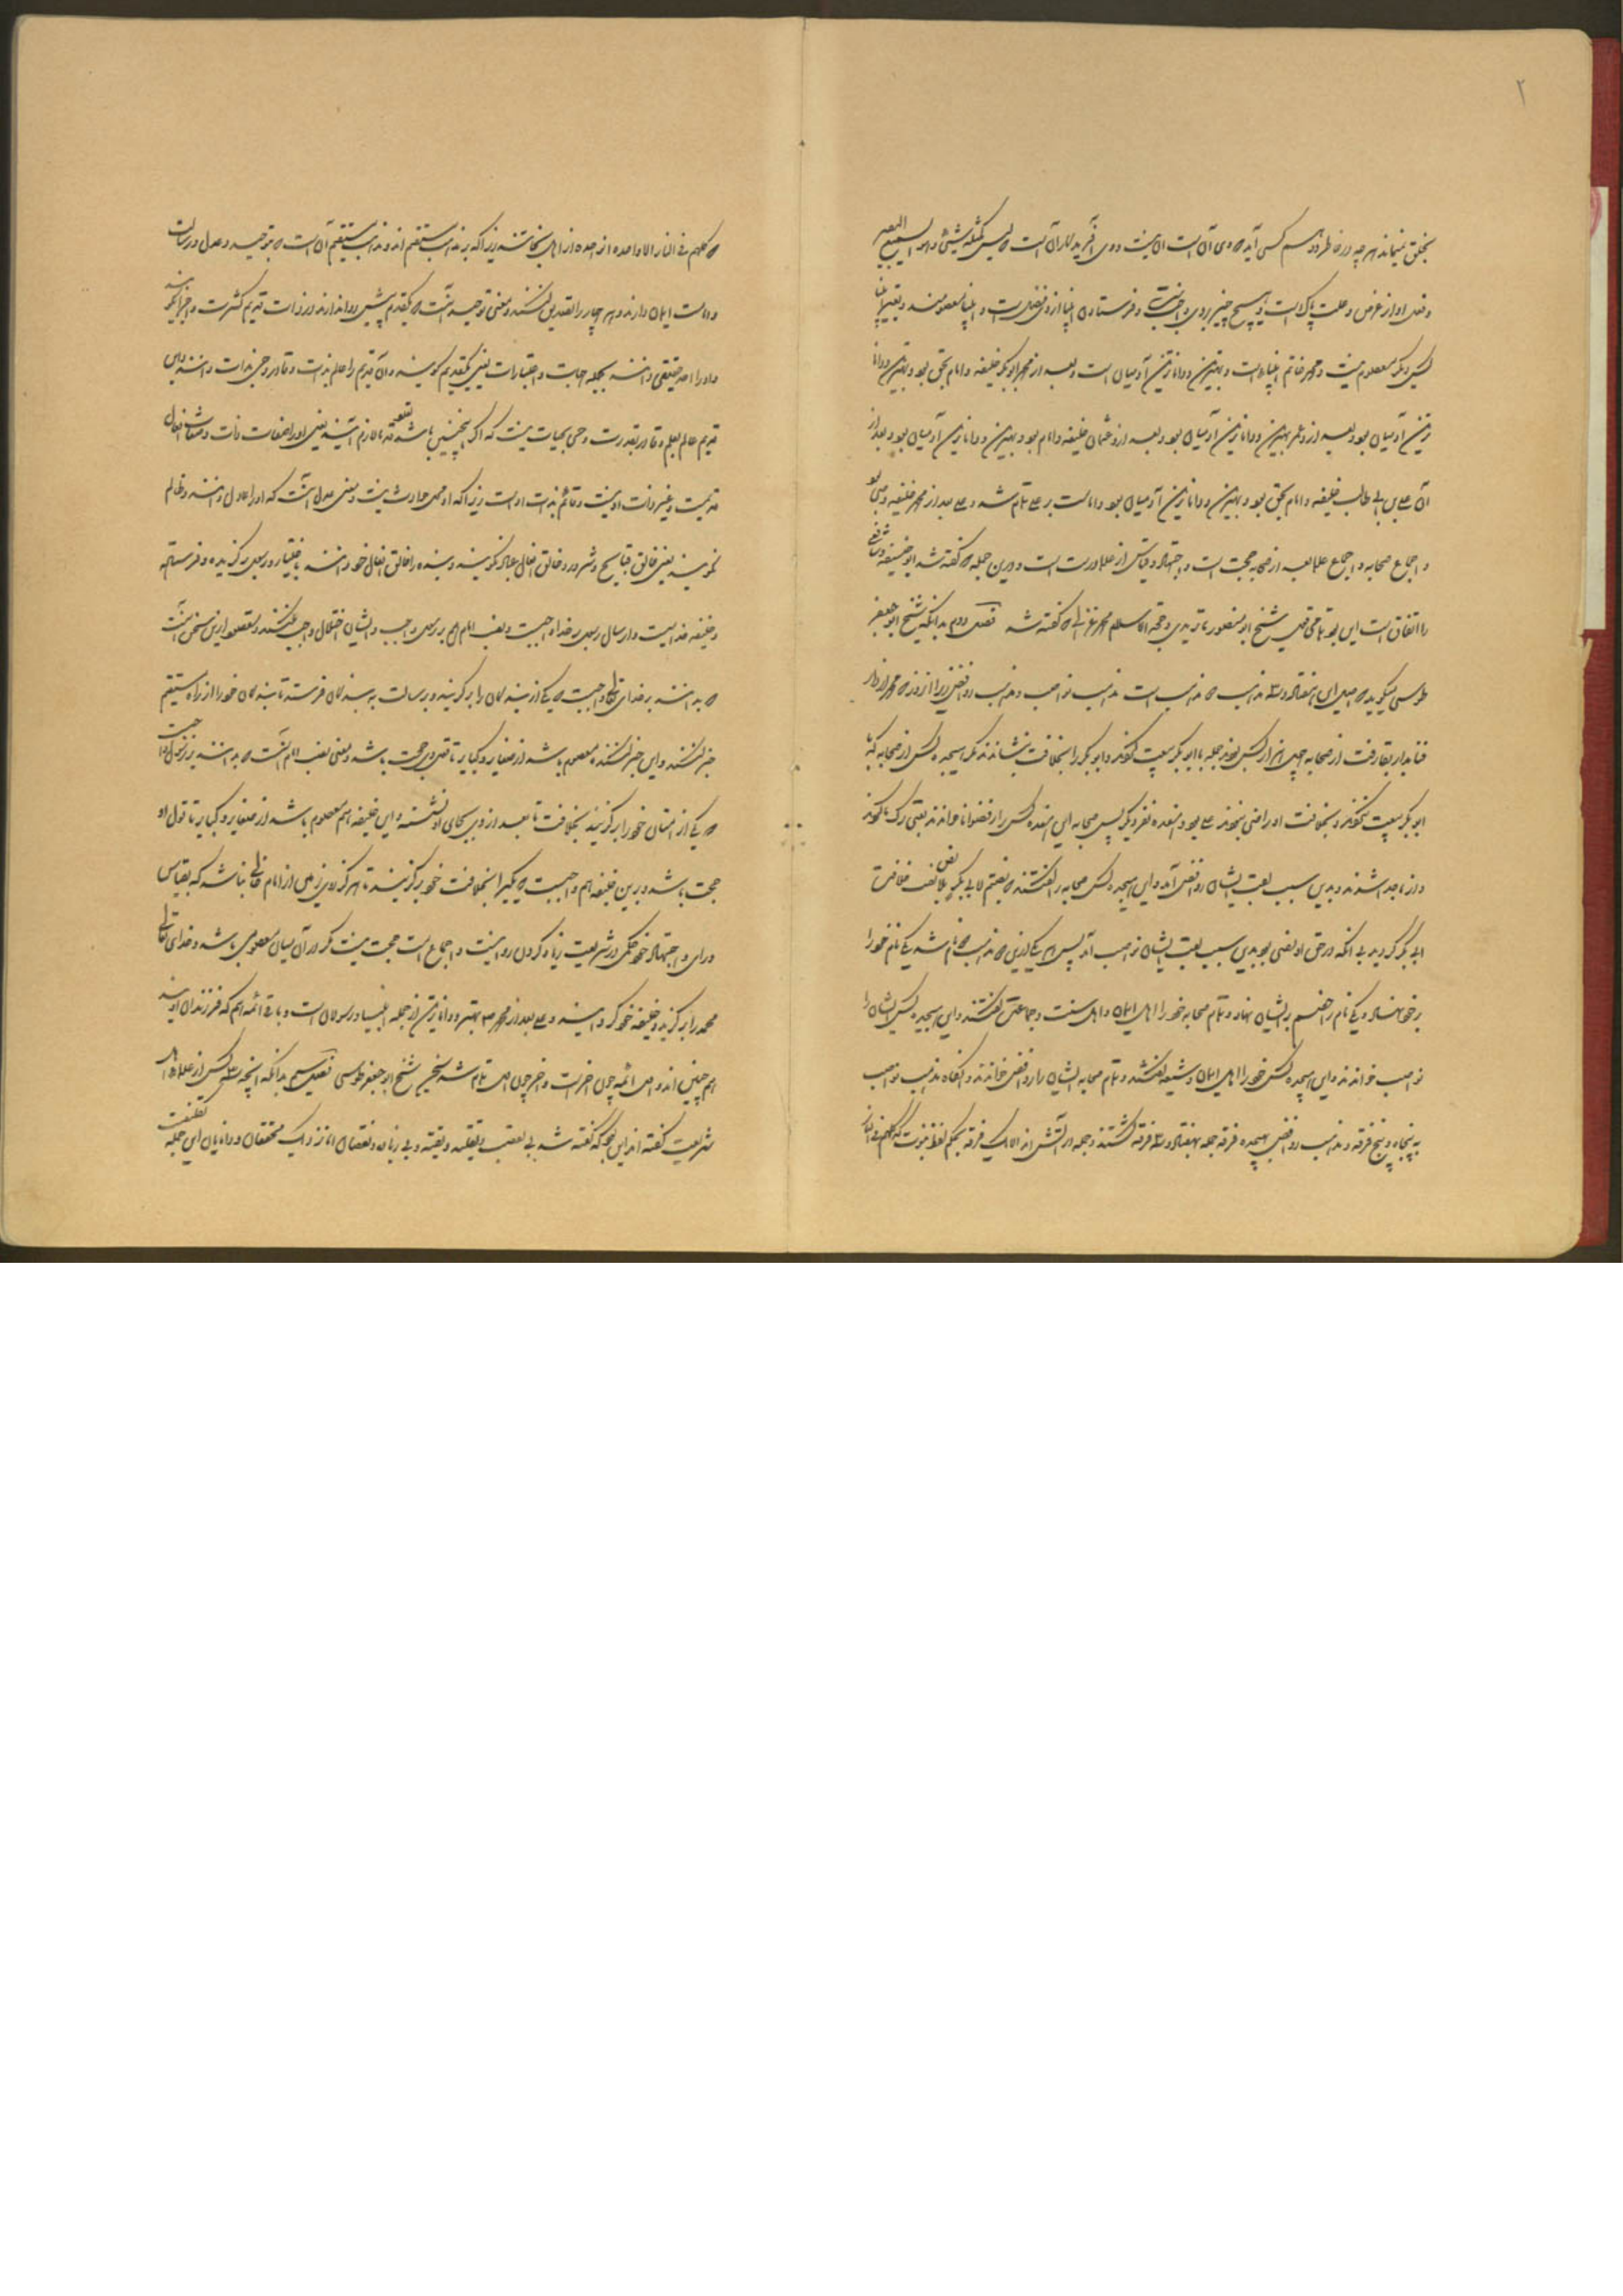 ۲
بخلق نیماند هر چه در خاطر و وهم کسی آید که وی آن است آن نیست و وی آفریدگار آن است که لیس کمثله شیئ و هو السمیع البصیر
و فعل او از غرض و علت پاک است و هیچ چیز بر وی واجب نیست و فرستادن انبیا از وی فضل است و انبیا معصومند و بغیر انبیا
کسی دیگر معصوم نیست و محمد خاتم انبیاء است و بهترین و داناترین آدمیان است و بعد از محمد ابوبکر خلیفه و امام بحق بود و بهترین و دانا
ترین آدمیان بود و بعد از و عمر بهترین و داناترین آدمیان بود و بعد از و عثمان خلیفه و امام بود و بهترین و داناترین آدمیان بود و بعد از
آن علی بن ابی طالب خلیفه و امام بحق بود و بهترین و داناترین آدمیان بود و امامت بر علی تمام شد و علی بعد از محمد خلیفه و وصی بود
و اجماع صحابه و اجماع علما بعد از صحابه حجت است و اجتهاد و قیاس از علما درست است و درین جمله که گفته شد ابوحنیفه و شافعی
را اتفاق است این بود تمامی قول شیخ ابو منصور ماتریدی و حجة الاسلام محمد غزالی که گفته شد فصل دوم بدانکه شیخ ابو جعفر
طوسی میگوید که اصل این هفتاد و سه مذهب دو مذهب است مذهب نواصب و مذهب روافض زیرا از روز که محمد از دار
فنا بدار بقا رفت از صحابه چهل هزار کس بودند جمله با ابوبکر بیعت کردند و ابوبکر را بخلافت بنشاندند مگر هیجده کس از صحابه که با
ابوبکر بیعت نکردند و بخلافت او راضی نبودند علی بود و هفده نفر دیگر پس صحابه این هفده کس را رفضوانا خواندند یعنی ترک ما کردند
و از ما جدا شدند و بدین سبب لقب ایشان روافض آمد و این هیجده کس صحابه را گفتند که نصبتم لابی بکر بلا نص نصب خلافت
ابی بکر کردید بی آنکه در حق او نصی بود بدین سبب لقب ایشان نواصب آمد پس هر یکی ازین دو مذهب دو نام شد یکی نام خود را
بر خود نهاد و یکی نام را خصم بر ایشان نهاد و تمام صحابه خود را اهل ایمان و اهل سنت و جماعت گفتند و این هیجده کس ایشان را
نواصب خواندند و این هیجده کس خود را اهل ایمان و شیعه گفتند و تمام صحابه ایشان را روافض خواندند و آنگاه مذهب نواصب
به پنجاه و پنج فرقه و مذهب روافض بهیجده فرقه جمله هفتاد و سه فرقه گشتند و جمله در آتش اند الا یک فرقه بحکم لفظ نبوت که کلهم فی النار
که کلهم فی النار الا واحده از اهل نجاتند زیرا که بر مذهب مستقیم اند و مذهب مستقیم آن است که بتوحید و عدل و رسالت
و امامت ایمان دارند و هر چهار را تصدیق کنند و معنی توحید آنست که بقدم پیش روا ندارند و در ذات قدیم کثرت و اجزا نگویند
و او را احد حقیقی دانند بجمله جهات و اعتبارات یعنی یک قدیم گویند و آن قدیم را عالم بذات و قادر و حی بذات دانند و این
قدیم عالم بعلم و قادر بقدرت و حی بحیات نیست که اگر اینچنین باشد تعدد قدما لازم آید یعنی او را صفات ذات و صفات افعال
قدیمست و غیر ذات او نیست و قائم بذات اوست زیرا که او محل حوادث نیست و معنی عدل آنست که او را عادل دانند و ظالم
نگویند یعنی خالق قبایح و شرور و خالق افعال عباد نگویند و بنده را خالق افعال خود دانند باختیار و رسول برگزیده و فرستاده
و خلیفه خداست و ارسال رسول بر خدا واجبست و نصب امام هم بر رسول واجب و ایشان اختلال واجب نکنند و مقصود ازین سخن آنست
که بدانند بر خدای تعالی واجبست که یکی از بندگان را برگزیند و برسالت به بندگان فرستد تا بندگان خود را از راه مستقیم
خبر کنند و این خبر کننده معصوم باشد از صغایر و کبایر تا قول وی حجت باشد و معنی نصب امام آنست که بدانند بر رسول واجبست
که یکی از امتان خود را برگزیند بخلافت تا بعد از وی بجای او نشیند و این خلیفه هم معصوم باشد از صغایر و کبایر تا قول او
حجت باشد و برین خلیفه هم واجبست که یکی را بخلافت خود برگزیند تا هرگز روی زمین از امام خالی نباشد که بقیاس
و رای و اجتهاد خود حکمی در شریعت زیاده کردن روا نیست و اجماع امت حجت نیست مگر در آن میان معصومی باشد و خدای تعالی
محمد را برگزید و خلیفه خود گردانید و علی بعد از محمد بهتر و داناترین از جمله انبیا و رسولان است و باقی ائمه هم که فرزندان اویند
هم چنین اند و اول ائمه چون آخرست و آخر چون اول تمام شد سخن شیخ ابو جعفر طوسی فصل سیم بدانکه آنچه سه کس از علماء اهل
شریعت گفته اند این بود که گفته شد بی تعصب و تقلید و تقیه و بی زیاده و نقصان اما نزدیک محققان و دانایان این جمله